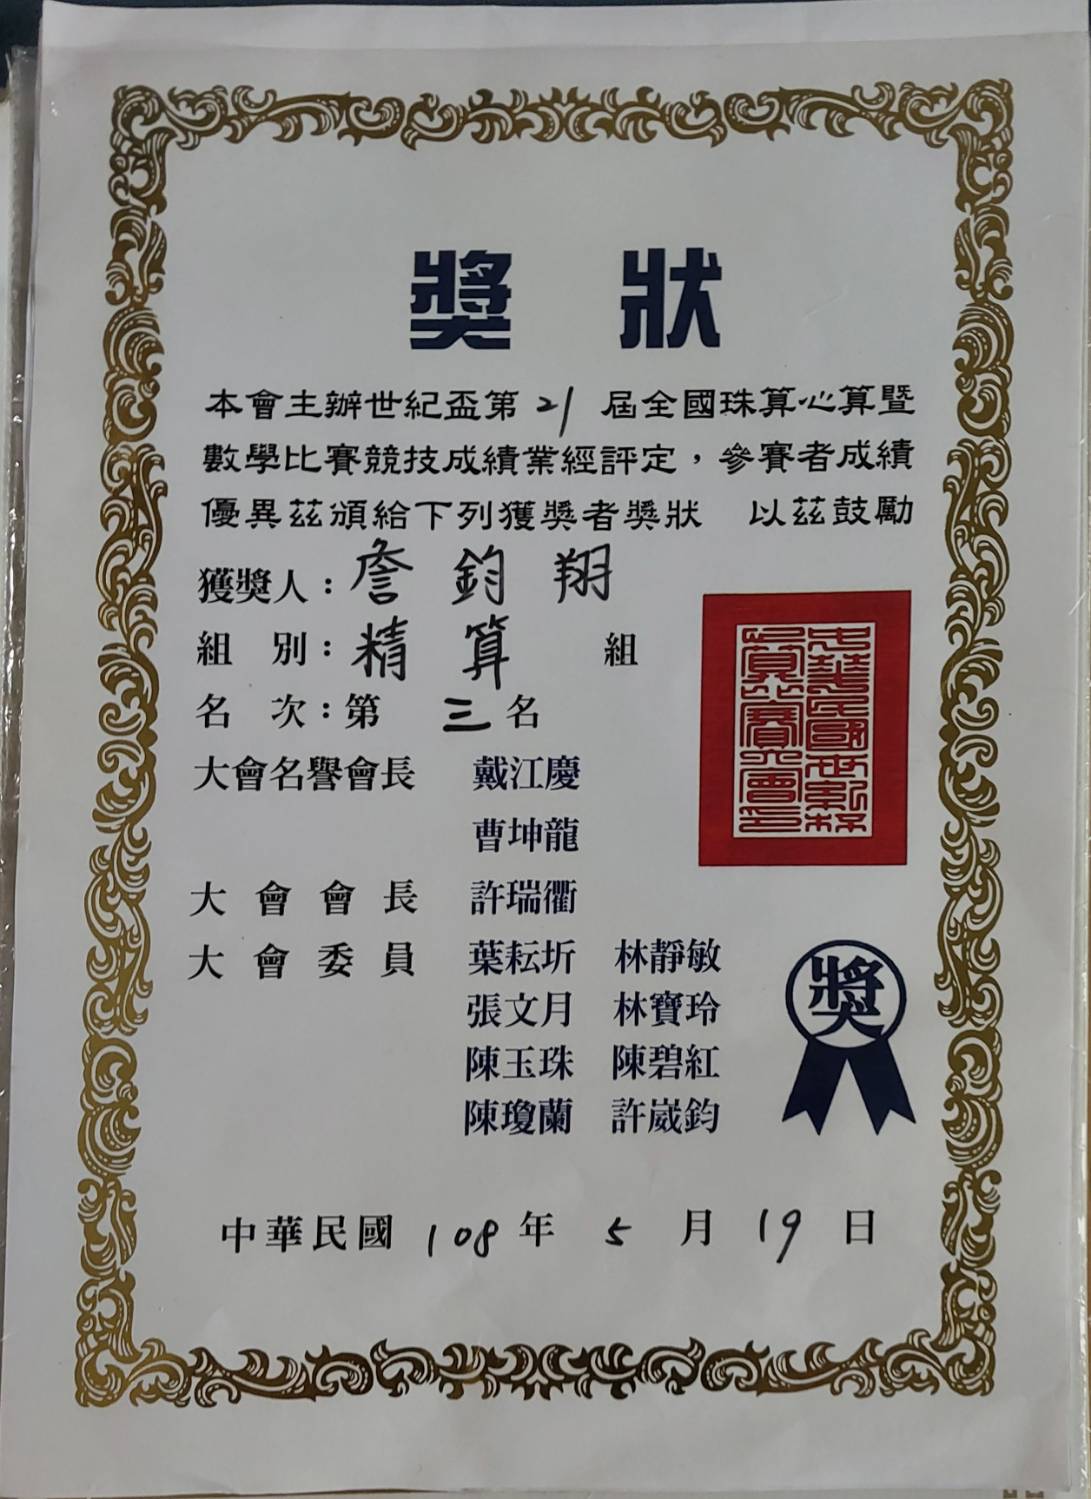 獎狀
本會主辦世紀盃第21屆全國珠算心算暨
數學比賽競技成績業經評定，參賽者成績
優異茲頒給下列獲獎者獎狀 以茲鼓勵
獲獎人：詹鈞翔
組別：精算 組
名次：第三名
大會名譽會長 戴江慶
曹坤龍
大會會長 許瑞衢
大會委員 葉耘圻 林靜敏
張文月 林寶玲
陳玉珠 陳碧紅
陳瓊蘭 許崴鈞
獎
中華民國108年5月19日